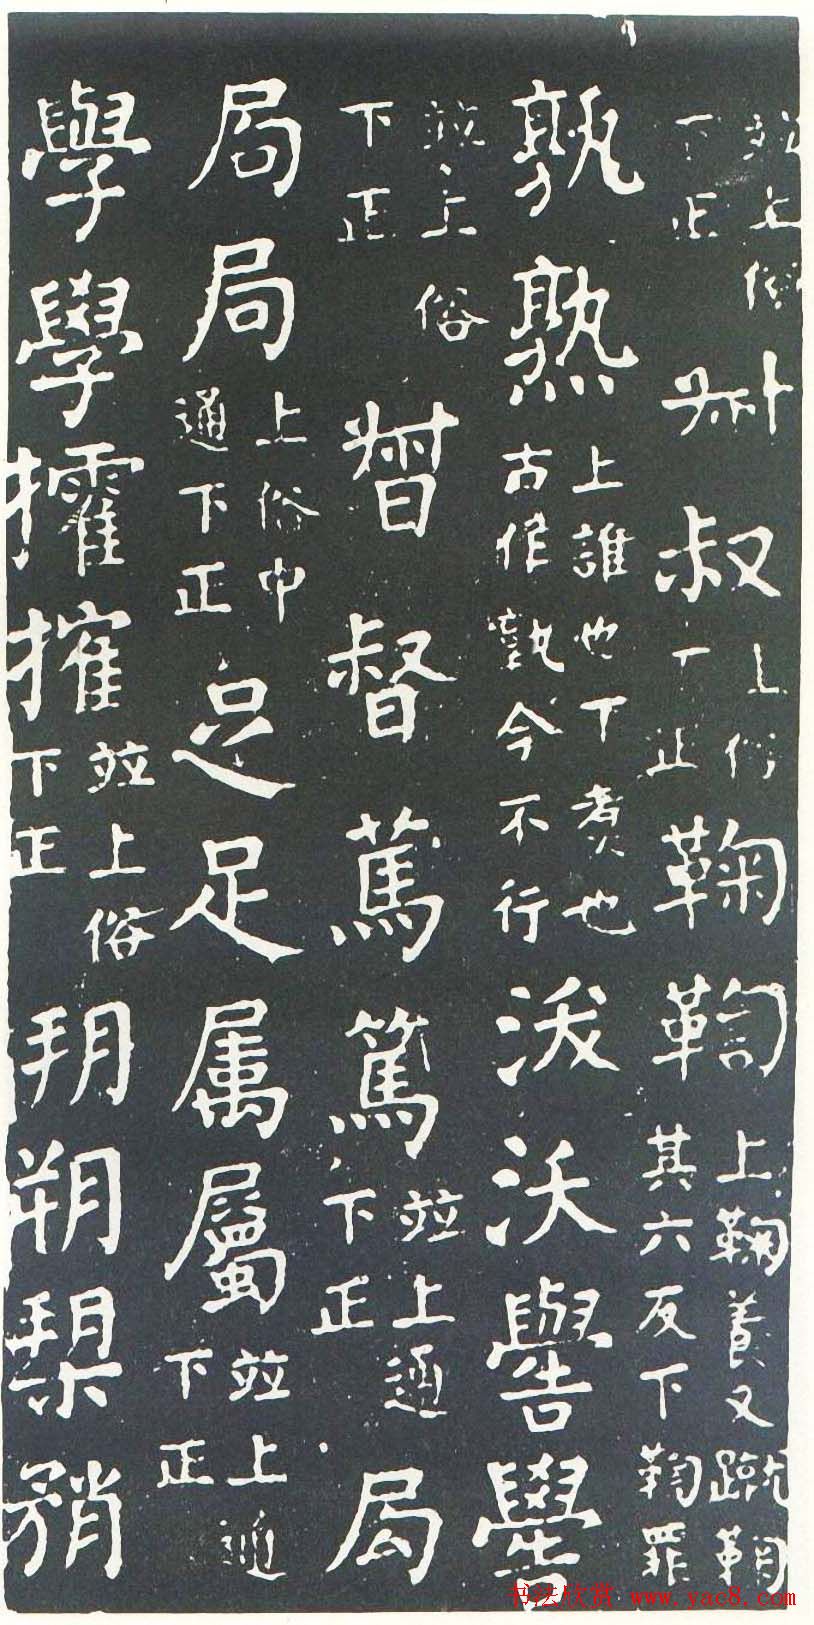 並上俗下正叔上俗下正鞠鞫上鞠養又蹴鞠其六反下鞫罪
孰熟上誰也下煮也古作孰今不行沃嚳
並上俗下正督篤篤並上通下正局
局局上俗中通下正足足属屬並上通下正
學學搉並上俗下正朔槊矟
书法欣赏 www.yac8.com